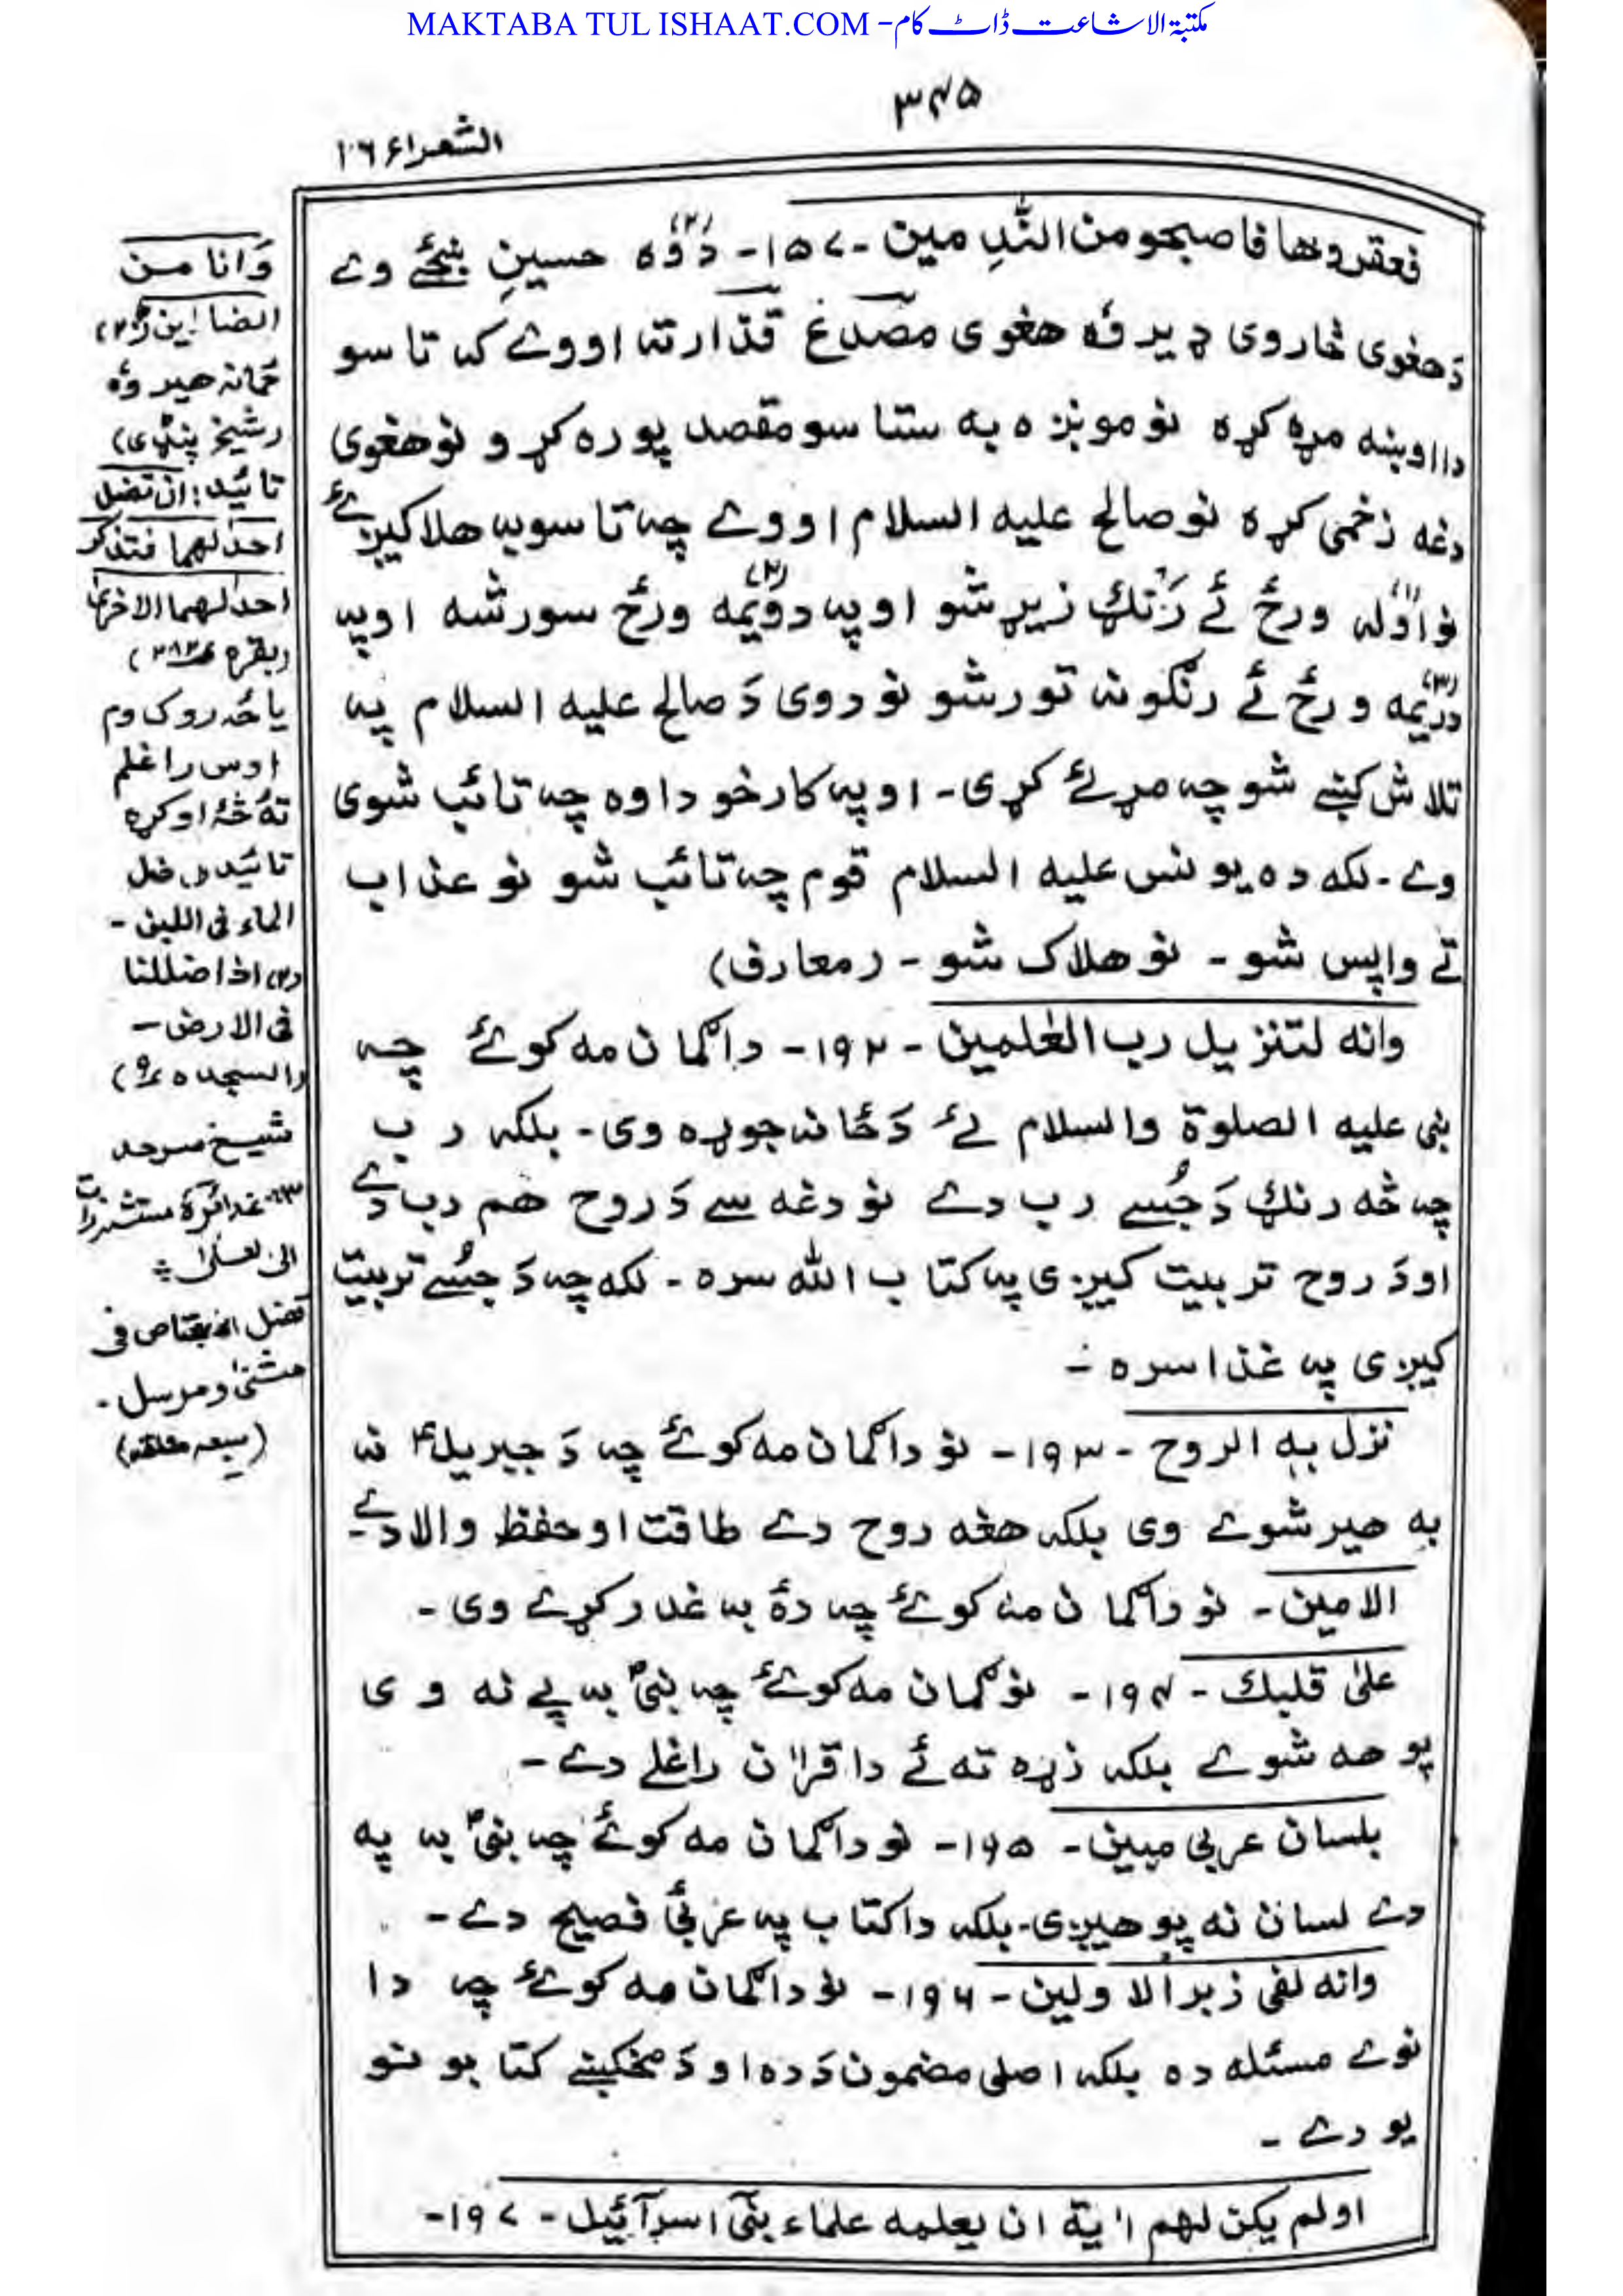 MAKTABA TUL ISHAAT.COM - مکتبۃ الاشاعت ڈاٹ کام
۳۴۵
الشعراء ۲۶
فعقروها فاصبحو من النٰدِمین ۔ ۱۵۷ ۔ (۲) دَوَه حسینِ ښځے وے
دَ هغوی څاروی ډیر وٗه هغوی مصدع قذار ته اووے که تاسو
دا اوښه مړه کړه نو مونږه به ستاسو مقصد پوره کړو نو هغوی
دغه زخمی کړه نو صالح علیه السلام اووے چه تاسو به هلاکیږئے
نو (۱) اوَله ورځ ئے رَنګ زیړ شو او په (۲) دوَیمه ورځ سور شه او په
(۳) دریمه ورځ ئے رنګونه تور شو نو دوی دَ صالح علیه السلام په
تلاش کښے شو چه مړ ئے کړی ۔ او په کار خو دا وه چه تائب شوی
وے ۔ لکه ده یونس علیه السلام قوم چه تائب شو نو عذاب
تے واپس شو ۔ نو هلاک شو ۔ (معارف)
وانه لتنزیل رب العٰلمین ۔ ۱۹۲ ۔ دا ګمان مه کوئے چه
نبی علیه الصلوة والسلام ئے دَ ځانه جوړه وی ۔ بلکه رب
چه څه رنګ دَ جُسے رب دے نو دغه سے دَ روح هم رب دے
او دَ روح تربیت کیږی په کتاب الله سره ۔ لکه چه دَ جُسے تربیت
کیږی په غذا سره ۔
نزل به الروح ۔ ۱۹۳ ۔ نو دا ګمان مه کوئے چه دَ جبریلؑ نه
به هیر شوے وی بلکه هغه روح دے طاقت او حفظ والا دے ۔
الامین ۔ نو دا ګمان مه کوئے چه دهٔ به غدر کړے وی ۔
علیٰ قلبك ۔ ۱۹۴ ۔ نو ګمان مه کوئے چه نبیؐ به پے نه وی
پوهه شوے بلکه زړه ته ئے دا قراٰن راغلے دے ۔
بلسان عربی مبین ۔ ۱۹۵ ۔ نو دا ګمان مه کوئے چه نبیؐ به په
دے لسان نه پوهیږی ۔ بلکه دا کتاب په عربیَ فصیح دے ۔
وانه لفی زبر الاولین ۔ ۱۹۶ ۔ نو دا ګمان مه کوئے چه دا
نوے مسئله ده بلکه اصلی مضمون دَ ده او دَ مخکښے کتابونو
یو دے ۔
اولم یکن لهم اٰیة ان یعلمه علماء بنی اسرآئیل ۔ ۱۹۷ ۔
وَانا من
الضالین (۲۰)
ځمانه هیر وٗه
(شیخ پنډی)
تائید: ان تضل
احدٰلهما فتذکر
احدٰلهما الاخریٰ
(بقره ۲۸۲)
یا څه روک وم
اوس راغلم
تهٔ څهٔ اوکړه
تائید (۱) ضل
الماء فی اللبن ۔
(۲) اذا ضللنا
فی الارض ۔
(السجده ۱۰)
شیخ سرحد
غدائره مستشزرات
الی العلیٰ
تضل العقاص فی
مثنیٰ و مرسل ۔
(سبعه معلقه)